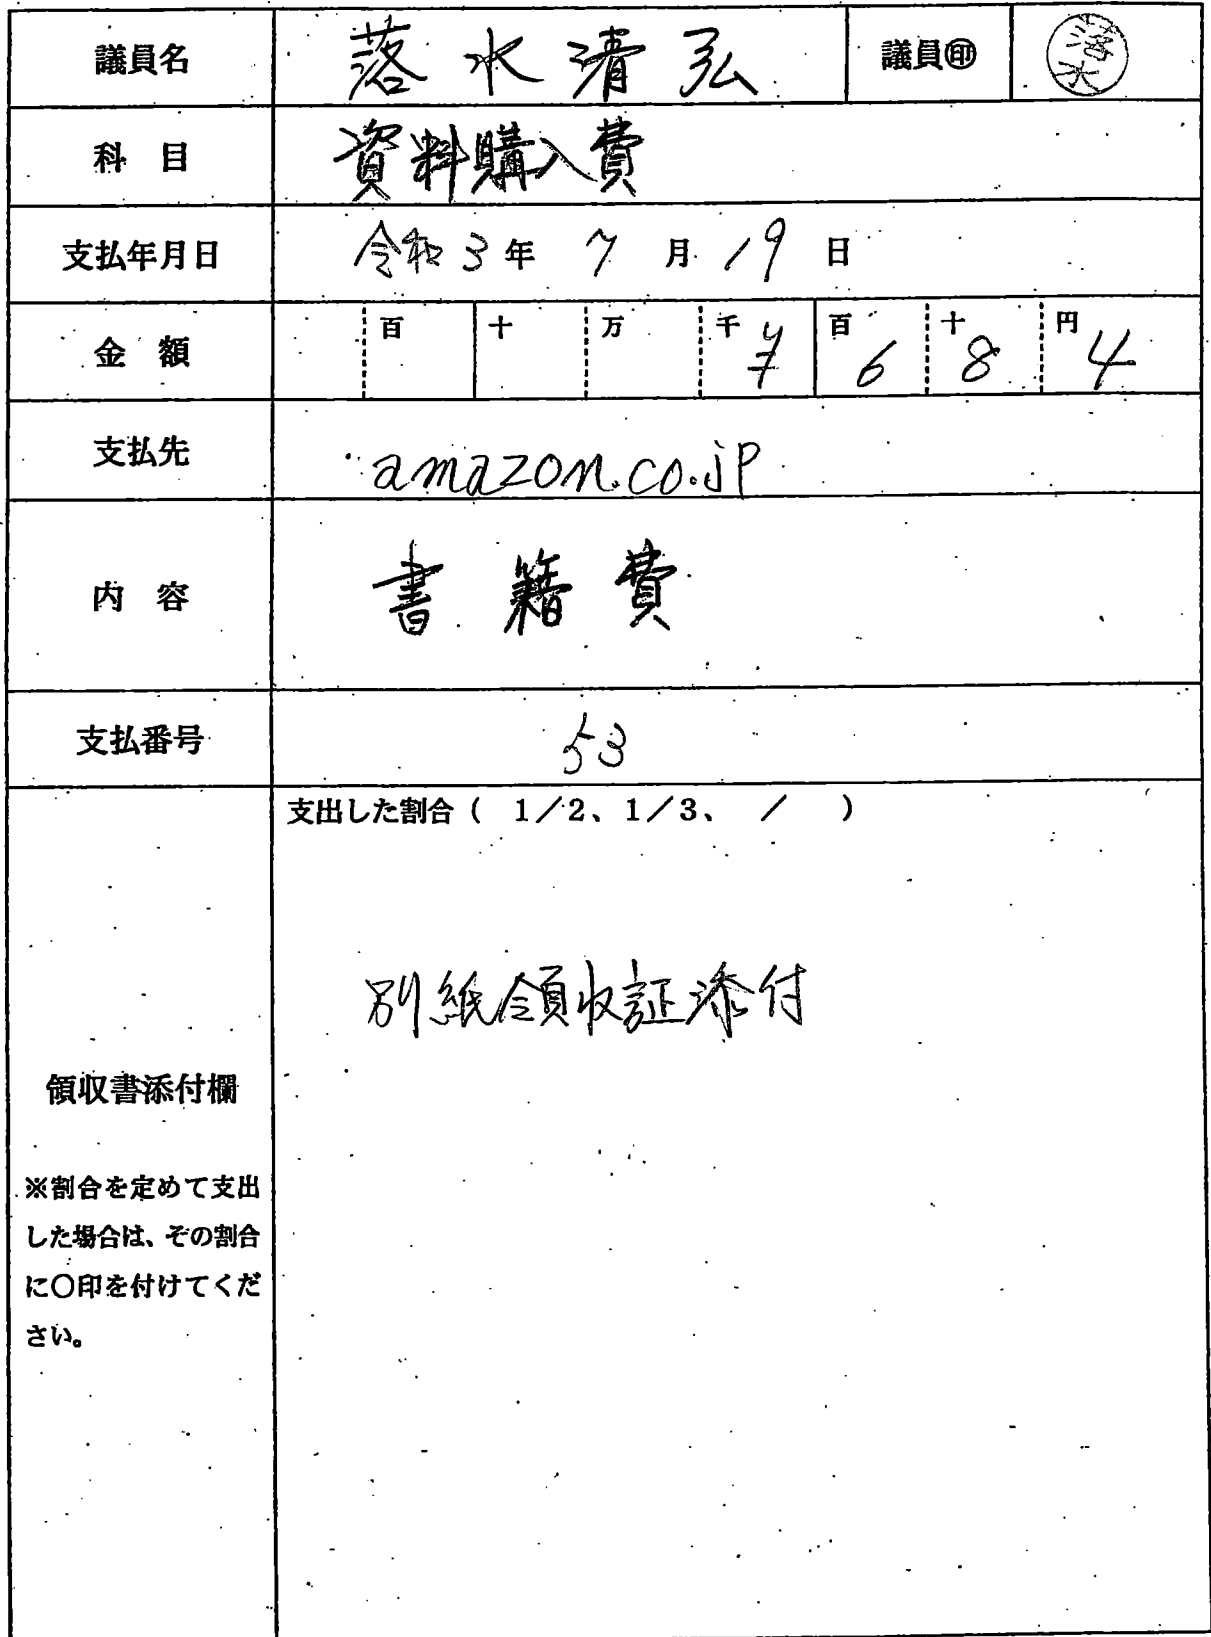 議員名 落水清弘 議員㊞ 落水
科 目 資料購入費
支払年月日 令和3年 7月 19日
金 額 百 十 万 千¥7 百6 十8 円4
支払先 amazon.co.jp
内 容 書籍費
支払番号 53
支出した割合( 1/2、1/3、 / )
別紙領収証添付
領収書添付欄
※割合を定めて支出
した場合は、その割合
に〇印を付けてくだ
さい。